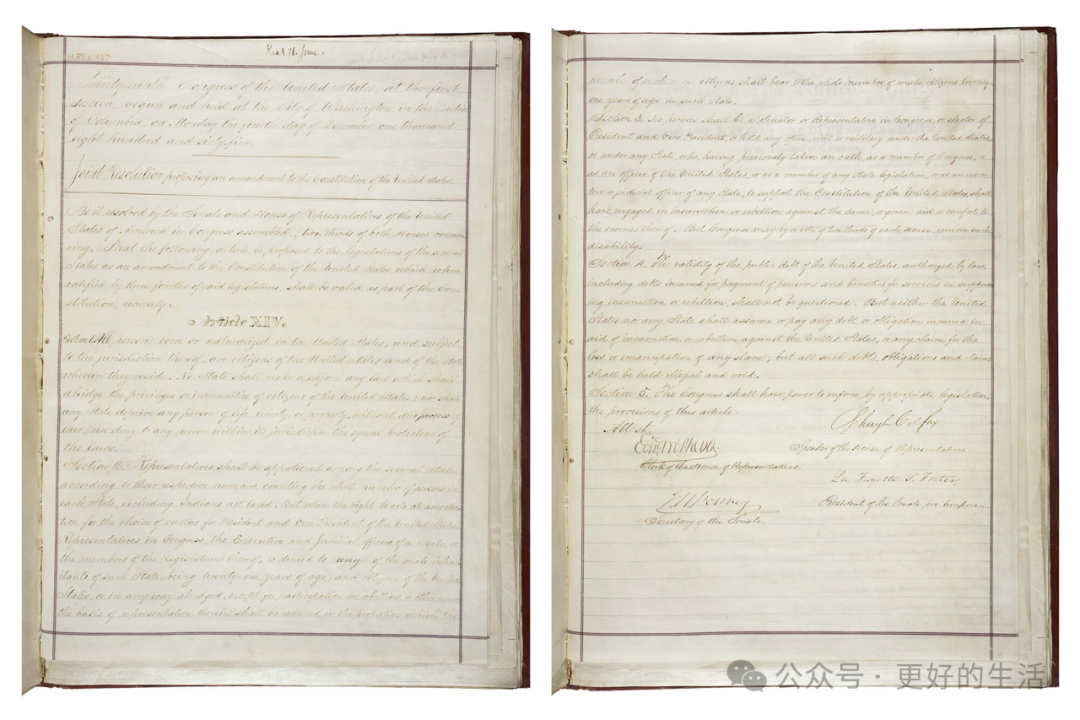 Thirty-ninth Congress of the United States, at the first
session, begun and held at the City of Washington, in the District
of Columbia, on Monday the fourth day of December, one thousand
eight hundred and sixty-five.
Joint Resolution proposing an amendment to the Constitution of the United States.
Be it resolved by the Senate and House of Representatives of the United
States of America in Congress assembled, (two thirds of both Houses concur-
ring,) That the following article be proposed to the legislatures of the several
States as an amendment to the Constitution of the United States, which when
ratified by three fourths of said legislatures, shall be valid as part of the Con-
stitution, namely:
Article XIV.
Section 1. All persons born or naturalized in the United States, and subject
to the jurisdiction thereof, are citizens of the United States and of the State
wherein they reside. No State shall make or enforce any law which shall
abridge the privileges or immunities of citizens of the United States; nor shall
any State deprive any person of life, liberty, or property, without due process of
law, nor deny to any person within its jurisdiction the equal protection of
the laws.
Section 2. Representatives shall be apportioned among the several States
according to their respective numbers, counting the whole number of persons in
each State, excluding Indians not taxed. But when the right to vote at any elec-
tion for the choice of electors for President and Vice President of the United States,
Representatives in Congress, the Executive and Judicial officers of a State, or
the members of the Legislature thereof, is denied to any of the male inhabi-
tants of such State, being twenty-one years of age, and citizens of the United
States, or in any way abridged, except for participation in rebellion, or other crime,
the basis of representation therein shall be reduced in the proportion which the
number of such male citizens shall bear to the whole number of male citizens twenty-
one years of age in such State.
Section 3. No person shall be a Senator or Representative in Congress, or elector of
President and Vice President, or hold any office, civil or military, under the United States,
or under any State, who, having previously taken an oath, as a member of Congress, or
as an officer of the United States, or as a member of any State legislature, or as an execu-
tive or judicial officer of any State, to support the Constitution of the United States, shall
have engaged in insurrection or rebellion against the same, or given aid or comfort to
the enemies thereof. But Congress may by a vote of two thirds of each House, remove such
disability.
Section 4. The validity of the public debt of the United States, authorized by law,
including debts incurred for payment of pensions and bounties for services in suppress-
ing insurrection or rebellion, shall not be questioned. But neither the United
States nor any State shall assume or pay any debt or obligation incurred in
aid of insurrection or rebellion against the United States, or any claim for the
loss or emancipation of any slave; but all such debts, obligations and claims
shall be held illegal and void.
Section 5. The Congress shall have power to enforce, by appropriate legislation,
the provisions of this article.
Attest
Schuyler Colfax
Speaker of the House of Representatives.
Edwd McPherson
Clerk of the House of Representatives.
La Fayette S. Foster
President of the Senate pro tempore.
Secretary of the Senate.
公众号 · 更好的生活